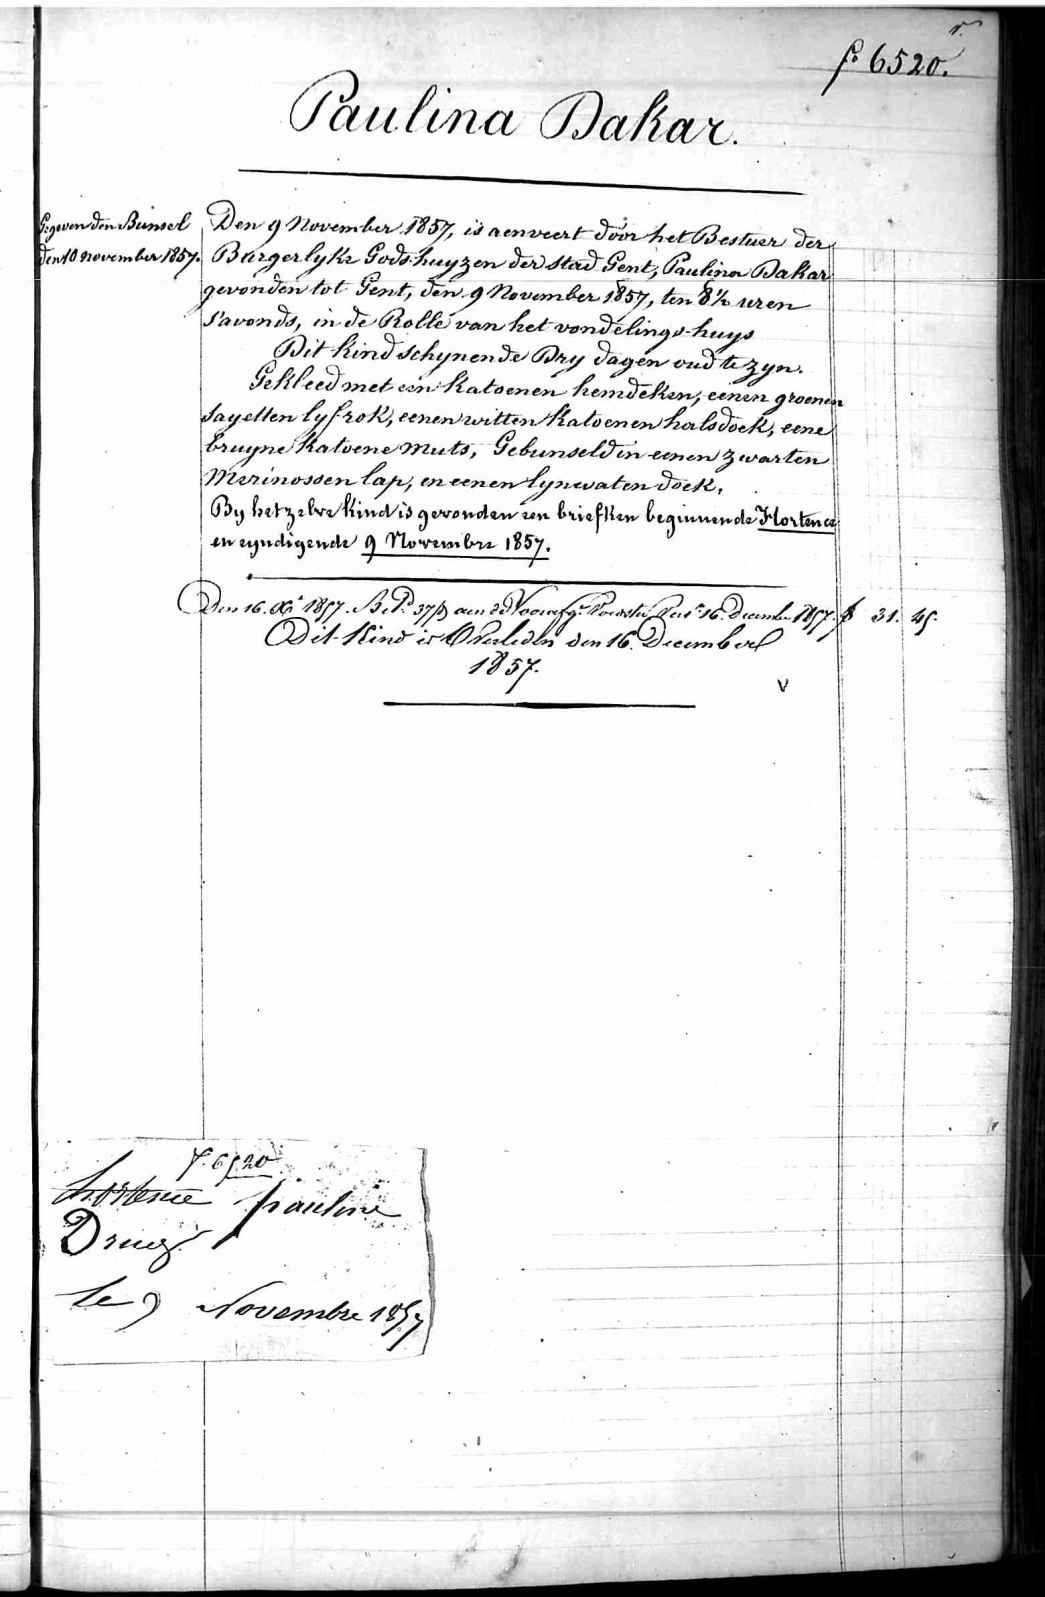 r.
fº 6520.
Paulina Dakar.
Gegeven den Bunsel
den 10 november 1857.
Den 9 November 1857, is aenveert door het Bestuer der
Burgerlyke Gods-huyzen der stad Gent, Paulina Dakar
gevonden tot Gent, den 9 November 1857, ten 8½ uren
s'avonds, in de Rolle van het vondelings-huys
Dit kind schynende Dry dagen oud te zyn.
Gekleed met een katoenen hemdeken, eenen groenen
sayetten lyfrok, eenen witten katoenen halsdoek, eene
bruyne katoene muts, Gebunseld in eenen zwarten
Merinossen lap, en eenen lynwaten doek.
By hetzelve kind is gevonden een briefken beginnende Hortence
en eyndigende 9 Novembre 1857.
Den 16. Xr 1857. 16 December 1857. f 31. 45.
Dit Kind is Overleden den 16. December
1857.
V
f. 6520
hortence pauline
le 9 Novembre 1857